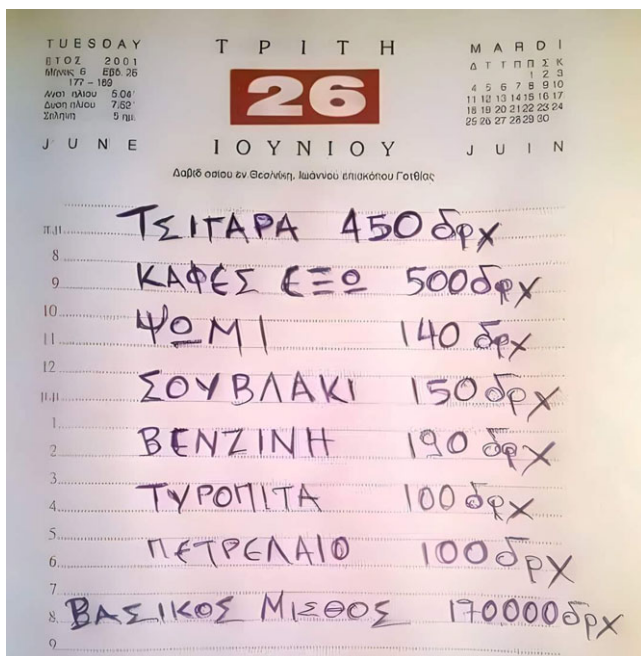 TUESDAY
ΕΤΟΣ 2001
Μήνας 6 Εβδ. 26
177 - 189
Ανατ ηλίου 5.04'
Δύση ηλίου 7.52'
Σελήνη 5 ημ.
JUNE
ΤΡΙΤΗ
26
ΙΟΥΝΙΟΥ
MARDI
Δ Τ Τ Π Π Σ Κ
1 2 3
4 5 6 7 8 9 10
11 12 13 14 15 16 17
18 19 20 21 22 23 24
25 26 27 28 29 30
JUIN
Δαβίδ οσίου εν Θεσ/νίκη, Ιωάννου επισκόπου Γοτθίας
π.μ. ΤΣΙΓΑΡΑ 450 δρχ
8
9 ΚΑΦΕΣ ΕΞΩ 500 δρχ
10
11 ΨΩΜΙ 140 δρχ
12
μ.μ. ΣΟΥΒΛΑΚΙ 150 δρχ
1
2 ΒΕΝΖΙΝΗ 190 δρχ
3
4 ΤΥΡΟΠΙΤΑ 100 δρχ
5
6 ΠΕΤΡΕΛΑΙΟ 100 δρχ
7
8 ΒΑΣΙΚΟΣ ΜΙΣΘΟΣ 170000 δρχ
9